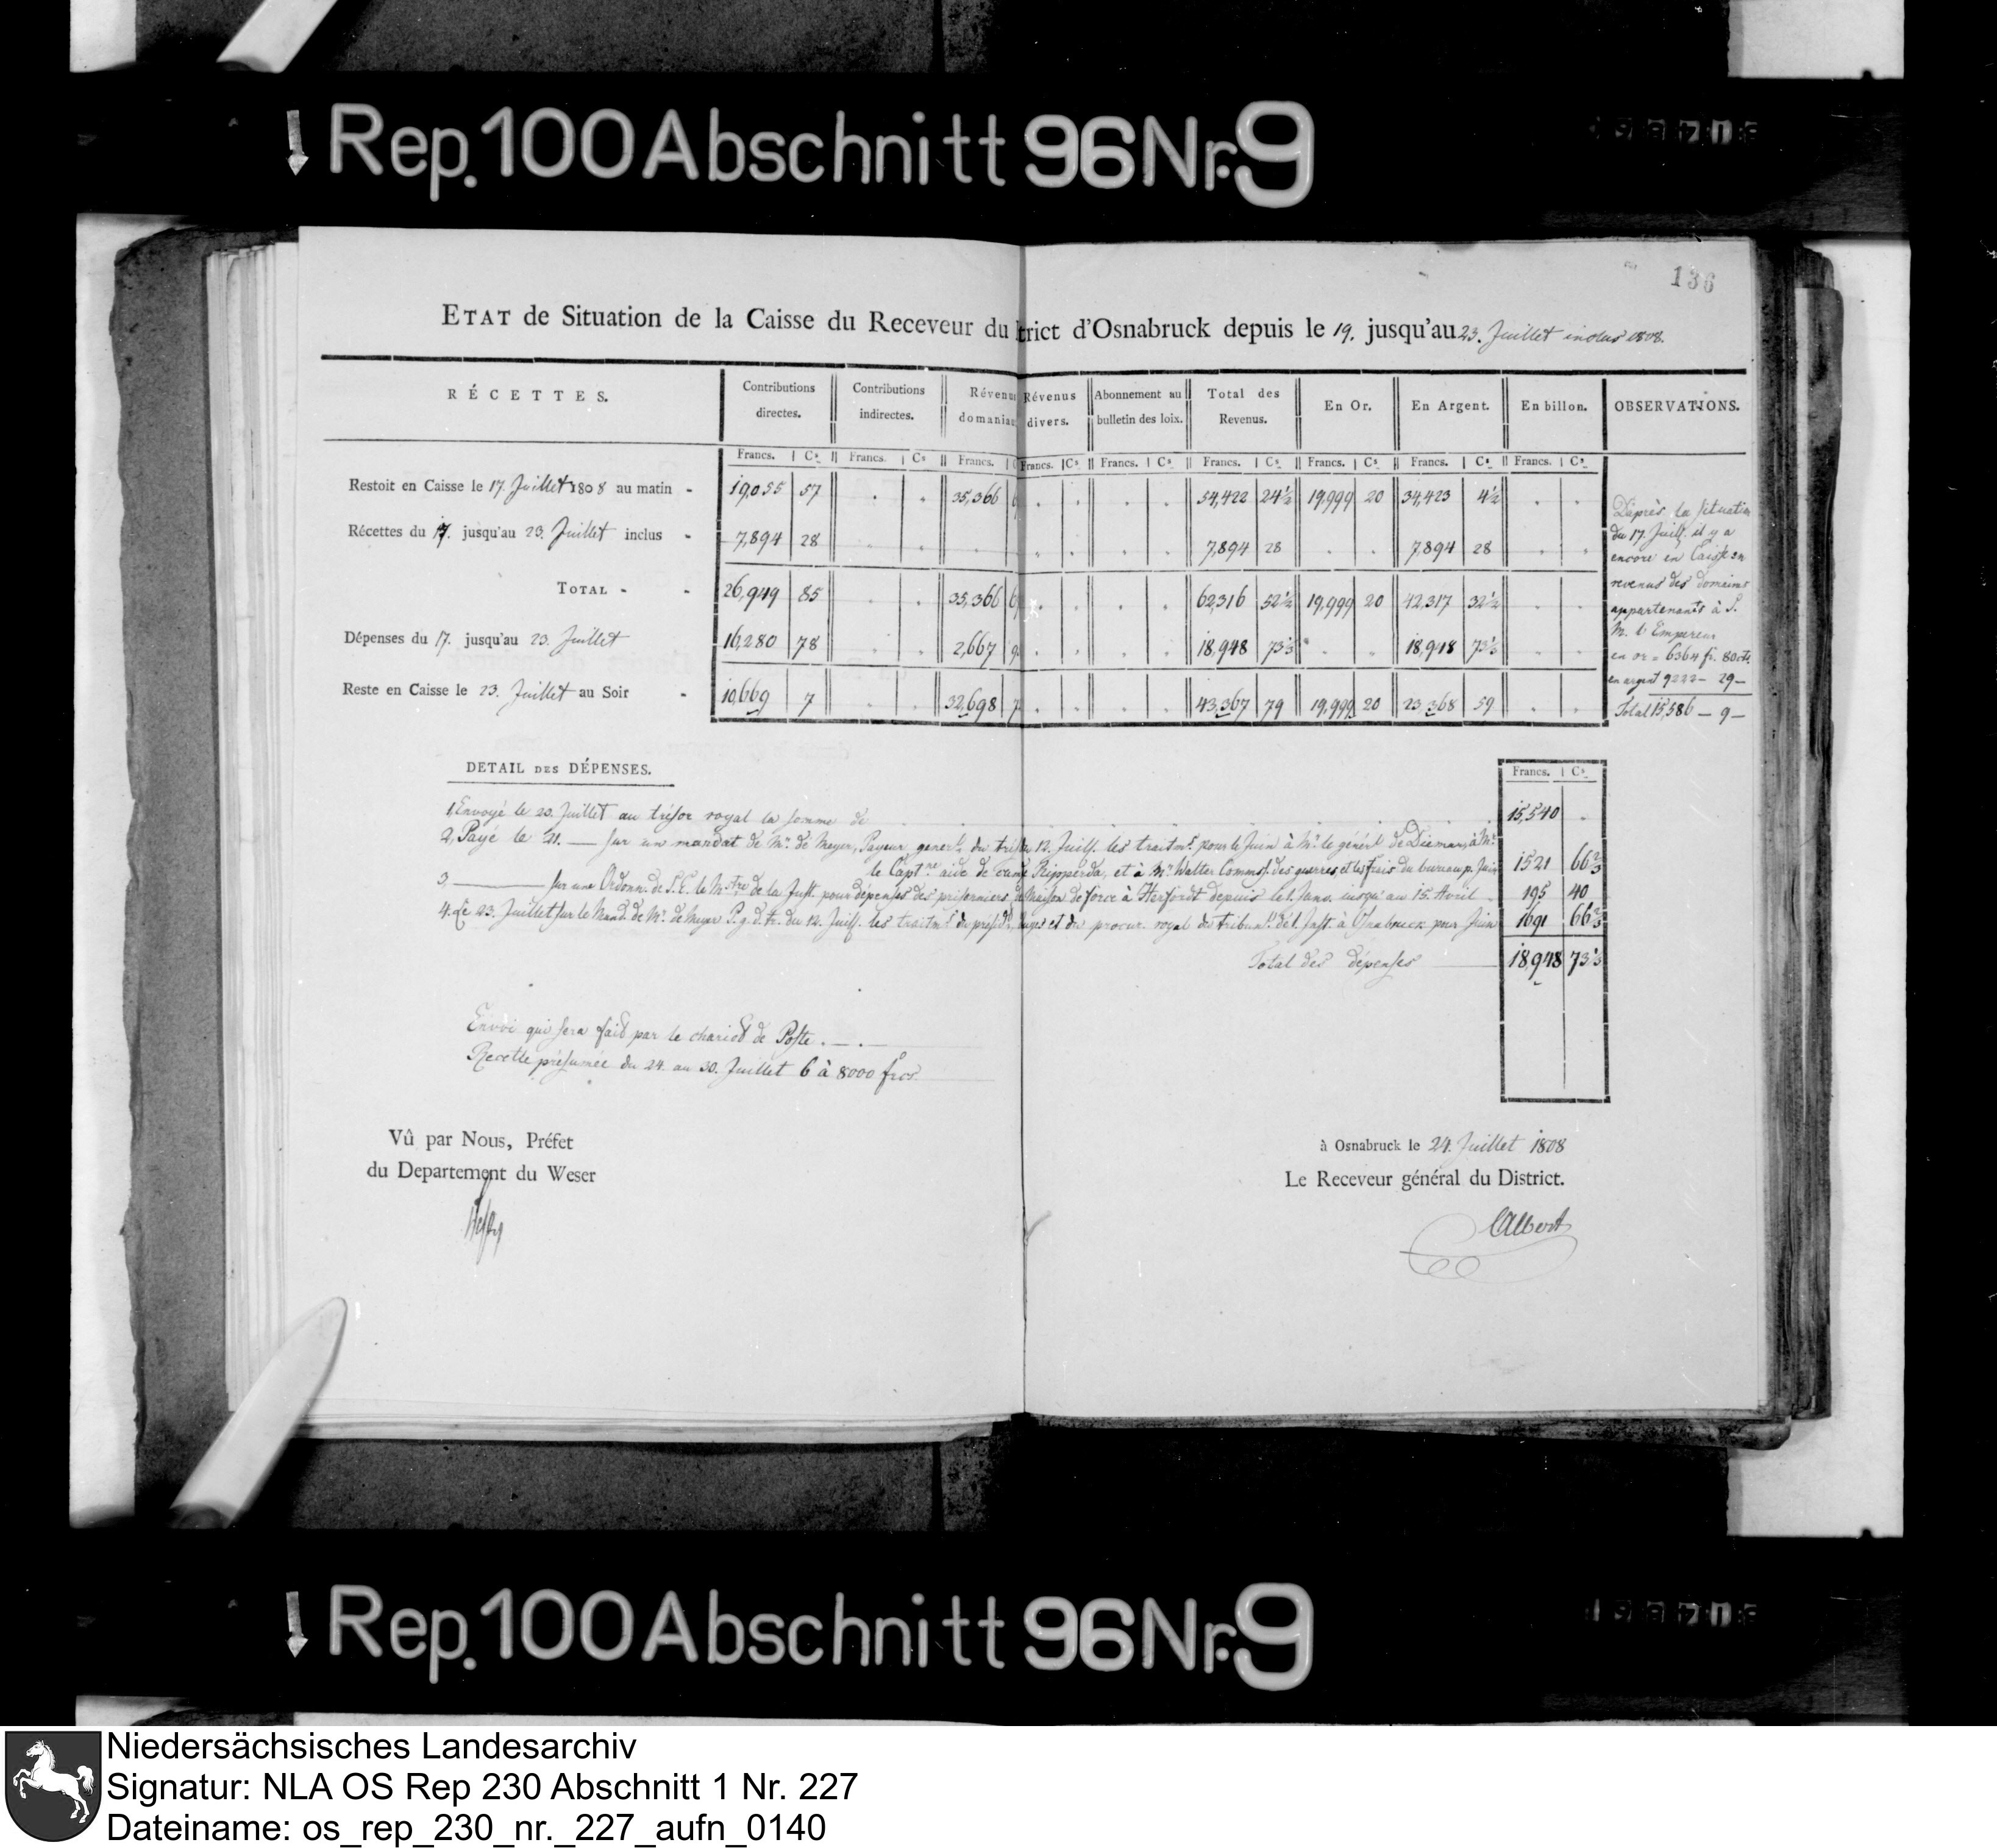 Rep. 100 Abschnitt 96 Nr. 9
136
ETAT de Situation de la Caisse du Receveur du trict d'Osnabruck depuis le 19. jusqu'au 23. Juillet inclus 1808.
RÉCETTES. Contributions directes. Contributions indirectes. Révenus domaniaux Révenus divers. Abonnement au bulletin des loix. Total des Revenus. En Or. En Argent. En billon. OBSERVATIONS.
Francs. Cs. Francs. Cs Francs. C Francs. Cs. Francs. Cs. Francs. Cs. Francs. Cs. Francs. Cs. Francs. Cs.
Restoit en Caisse le 17. Juillet 1808 au matin - 19,055 57 . . 35,366 6 . . . . 54,422 24½ 19,999 20 34,423 4½ . .
Récettes du 17. jusqu'au 23. Juillet inclus - 7,894 28 . . . . . . . 7,894 28 . . 7,894 28 . .
TOTAL - - 26,949 85 . . 35,366 6 . . . . 62,316 52½ 19,999 20 42,317 32½ . .
Dépenses du 17. jusqu'au 23. Juillet 16,280 78 . . 2,667 9 . . . . 18,948 73⅓ . . 18,948 73⅓ . .
Reste en Caisse le 23. Juillet au Soir - 10,669 7 . . 32,698 7 . . . . 43,367 79 19,999 20 23,368 59 . .
D'après la situation
du 17. Juill. il y a
encore en Caisse en
revenus des domaines
appartenants à S.
M. l'Empereur
en or = 6364 fr. 80 cts.
en argent 9222 - 29 -
Total 15,586 - 9 -
DETAIL DES DÉPENSES.
Francs. Cs.
1, Envoyé le 20. Juillet au trésor royal la somme de . . . . . . 15,540 .
2, Payé le 21. — sur un mandat de Mr. de Meyer, Payeur generl. du trés. 12. Juill. les traitmts. pour le Juin à Mr. le génerl. de Diemar, à Mr.
le Captne. aide de camp Ripperda, et à Mr. Walter Commss. des guerres, et les frais du bureau p. Juin 1521 66⅔
3, — sur une Ordonn. de S. E. le Mstre de la Just. pour dépenses des prisonniers de Maison de force à Herfordt depuis le 1. Janv. jusqu'au 15. Avril . 195 40
4. Le 23. Juillet sur le Mand. de Mr. de Meyer P. g. d. tr. du 12. Juill. les traitmts. du présidt., juges et du procur. royal du tribunl. de 1. Inst. à Osnabruck pour Juin 1691 66⅔
Total des dépenses 18,948 73⅓
Envoi qui sera fait par le chariot de Poste . — .
Recette présumée du 24. au 30. Juillet 6 à 8000 frcs.
Vû par Nous, Préfet
du Departement du Weser
à Osnabruck le 24. Juillet 1808
Le Receveur général du District.
CAlbert
Rep. 100 Abschnitt 96 Nr. 9
Niedersächsisches Landesarchiv
Signatur: NLA OS Rep 230 Abschnitt 1 Nr. 227
Dateiname: os_rep_230_nr._227_aufn_0140